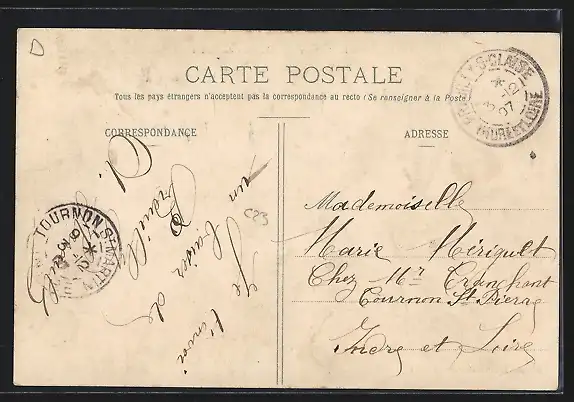 D
CARTE POSTALE
Tous les pays étrangers n'acceptent pas la correspondance au recto (Se renseigner à la Poste)
CORRESPONDANCE
ADRESSE
Je t'envoi
un baiser de
C23
TOURNON ST MARTIN
INDRE ET LOIRE
Mademoiselle
Marie Mériguet
Chez Mr Tranchant
Tournon St Pierre
Indre et Loire